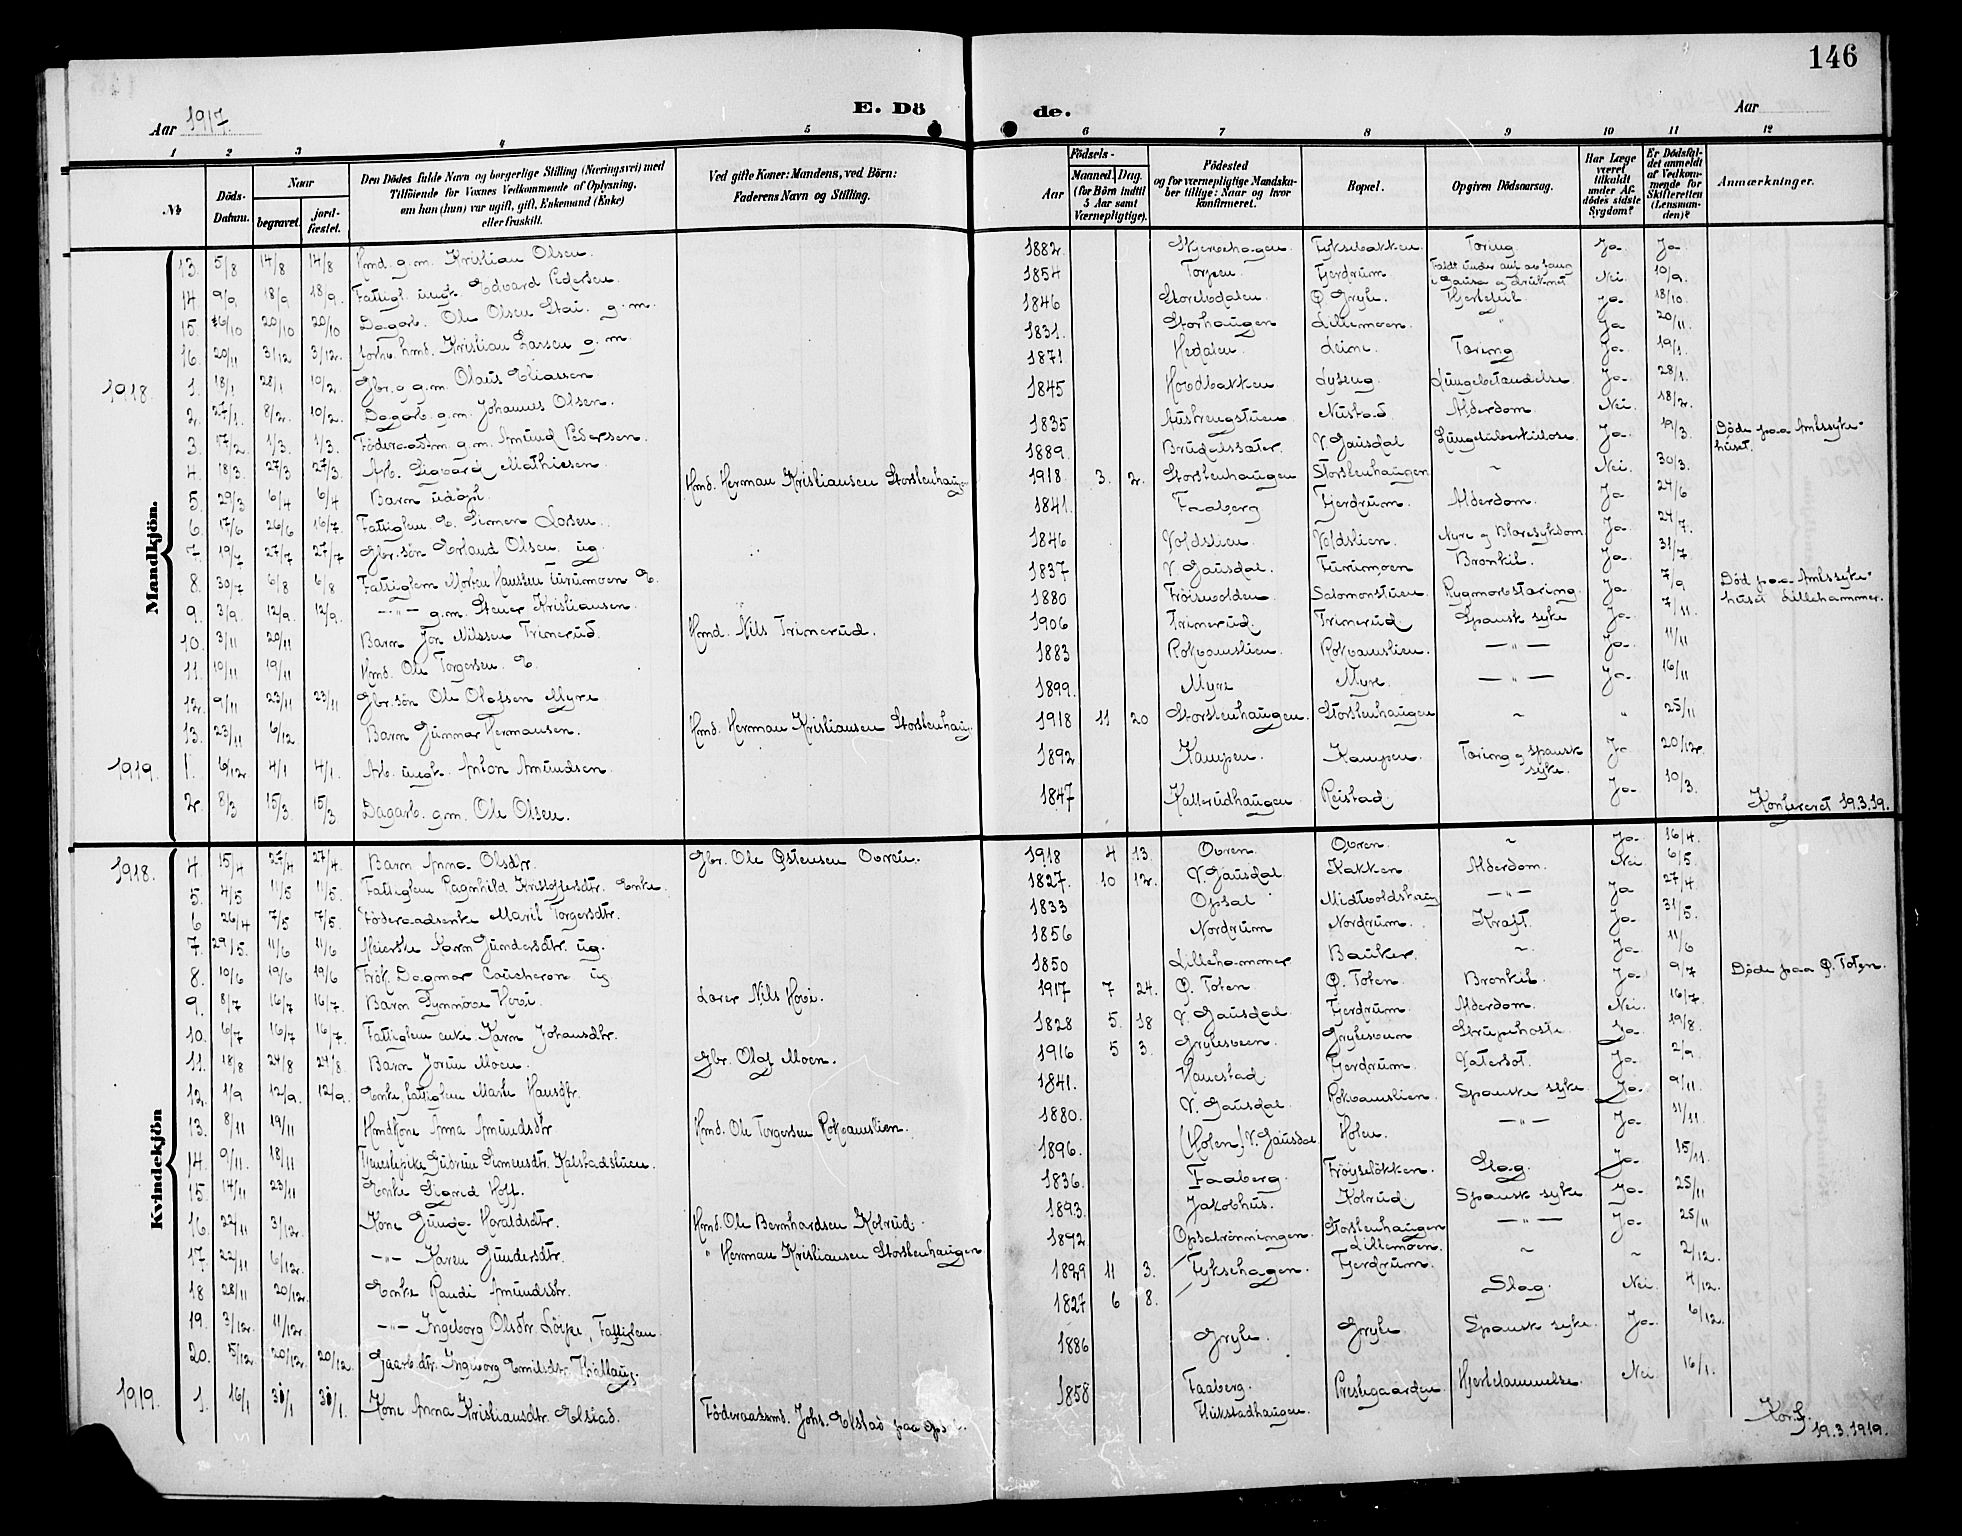 146
Aar 1917.
E. Dö de.
Aar
1 2 3 4 5 6 7 8 9 10 11 12
№
Döds-Datum.
Naar
begravet.
jord-fæstet.
Den Dödes fulde Navn og borgerlige Stilling (Næringsvei) med Tilföiende for Voxnes Vedkommende af Oplysning, om han (hun) var ugift, gift, Enkemand (Enke) eller fraskilt.
Ved gifte Koner: Mandens, ved Börn: Faderens Navn og Stilling.
Födsels-
Aar
Maaned. Dag.
(for Börn indtil 5 Aar samt Værnepligtige).
Födested og for værnepligtige Mandskaber tillige: Naar og hvor konfirmeret.
Bopæl.
Opgiven Dödsaarsag.
Har Læge været tilkaldt under Afdödes sidste Sygdom?
Er Dödsfaldet anmeldt af Vedkommende for Skifteretten (Lensmanden)?
Anmærkninger.
Mandkjön.
13. 5/8 14/8 14/8 Hmd. g.m. Kristian Olsen. 1882. Skjervehagen. Fyksebakken. Tæring. Ja. Ja.
14. 9/9 18/9 18/9. Fattigl. ungk. Edvard Pedersen. 1854 Torpen. Fjerdrum. Nei. 10/9.
15. 16/10 20/10 20/10 Dagarb. Ole Olsen Stai. g.m. 1846 Storebdalen. Ö. Gryte. Hjertefeil. Ja. 18/10.
16. 20/11 3/12 3/12. forh. hmd. Kristian Larsen g.m. 1831. Storhaugen Lillemoen. " Ja 20/11.
1918. 1. 18/1 28/1 10/2. Gbr. g.m. Olaus Eliassen 1871. Hedalen. Leine. Tæring Ja. 19/1.
2. 27/1. 8/2. 10/2. Dagarb. g.m. Johannes Olsen. 1845 Hovdbakken Lyseng. Lungebetændelse. Ja. 28/1.
3. 17/2. 1/3. 1/3. Föderaadsm. g.m. Amund Pedersen. 1835 Nustad Alderdom Nei. 18/2.
4. 18/3. 27/3 27/3. Arb. Sigvard Mathiesen. 1889. Brudelssæter. V. Gausdal Lungetuberkulose. Ja. 19/3. Döde paa Amtssyke-huset.
5. 29/3 6/4 6/4 Barn udöpt. Hmd. Herman Kristiansen Storstenhaugen 1918. 3. 2. Storstenhaugen Storstenhaugen ~ Nei. 30/3.
6. 17/6 26/6 16/7 Fattiglem E. Simen Larsen. 1841. Faaberg Fjerdrum. Alderdom. Ja 24/6
7. 19/7 27/7 27/7 Gbr.sön Erland Olsen. ug. 1846 Voldslien. Voldslien. Nyre og Blæresykdom Ja. 24/7.
8. 30/7 6/8 6/8 Fattiglem Morten Hanssen Furumoen E. 1837 V. Gausdal. Furumoen Bronkit. Ja. 31/7
9. 3/9. 12/9. 12/9. —"— g.m. Stener Kristiansen. 1880 Fröisvolden. Salomonstuen. Rygmarvstæring. Ja 7/9 Död paa Amtssyke-huset Lillehammer.
10. 3/11 20/11 Barn Jon Nilssen Trinerud. Hmd. Nils Trinerud. 1906 Trinerud. Trinerud. Spansk syke Ja. 7/11.
11. 10/11 19/11 Hmd. Ole Torgersen. E. 1883 Rokvamslien. Rokvamslien. —"— Ja. 11/11
12. 9/11 23/11 23/11 Gbr.sön Ole Olafsen Myre 1899. Myre Myre. —"— Ja. 16/11
13. 23/11 6/12. Barn Gunnar Hermansen. Hmd. Herman Kristiansen Storstenhaug. 1918 11 20 Storstenhaugen. Storstenhaugen ~ " 25/11
1919. 1. 6/12. 4/1 4/1. Arb. ungk. Anton Amundsen 1892 Kampen. Kampen. Tæring og spansk syke. Ja 20/12.
2. 8/3 15/3 15/3 Dagarb. g.m. Ole Olsen. 1847 Kallerudhaugen Reistad. Ja. 10/3. Konfereret 19.3.19.
Kvindekjön
1918. 4. 15/4 27/4 27/4. Barn Anna Olsdtr. Gbr. Ole Östensen Ovren. 1918 4 13. Ovren. Ovren. ~ Ja. 16/4.
5. 4/5 11/5 11/5. Fattiglem Ragnhild Kristoffersdtr. Enke. 1827. 10 12. V. Gausdal Kakken Alderdom. Nei. 6/5.
6 26/4 7/5 7/5. Föderaadsenke Marit Torgersdtr. 1833 Opsal Midtvoldshaug —"— Ja 27/4.
7. 29/5. 11/6 11/6 Meierske Karn Gundersdtr. ug. 1856 Nordrum Nordrum. Kræft. Ja. 31/5.
8. 10/6 19/6 19/6 Frök. Dagmar Coucheron ug 1850 Lillehammer Bauker. ~. Ja. 11/6
9. 8/7 16/7 16/7. Barn Synnöve Hovi. Lærer Nils Hovi. 1917 7 24. Ö. Toten Ö. Toten. Bronkit. Ja. 9/7 Döde paa Ö. Toten.
10. 6/7 16/7 16/7. Fattiglem enke Karn Johansdtr. 1828 5. 18 V. Gausdal Fjerdrum. Alderdom. Nei. 16/7.
11. 18/8 24/8 24/8. Barn Jorun Moen. Gbr. Olaf Moen. 1916 5 3. Gryteseen Strupehoste. Ja. 19/8.
12. 1/9 12/9. 12/9. Enke, fattiglem Marte Hansdtr. 1841. Fjerdrum. Vatersot. Ja. 2/9.
13. 8/11 19/11 Hmdkone Anna Amundsdtr. Hmd. Ole Torgersen Rokvamslien. 1880. V. Gausdal. Rokvamslien. Spanske syke. Ja. 9/11.
14. 9/11. 18/11 Tjenstepike Gudrun Simensdtr. Kalstadstuen. 1896. (Holen) V. Gausdal Holen. —"— Ja 11/11.
15. 14/11 23/11 Enke Sigrid Hoff. 1836. Faaberg. Fröyselökken. Slag. Ja. 15/11.
16. 22/11 3/12. Kone Gunda Haraldsdtr. Hmd. Ole Bernhardsen Kolrud. 1893. Jakobhus. Kolrud Spansk syke. Ja. 25/11
17. 22/11 6/12. —"— Karen Gundersdtr. " Herman Kristiansen Storstenhaugen 1892. Opsalrönningen. Storstenhaugen —"— Ja. 25/11
18 28/11 20/12. Enke Randi Amundsdtr. 1829 11 3. Fyksehagen. Lillemoen. ~ ~ 2/12.
19. 3/12. 11/12. —"— Ingeborg Olsdtr. Lörpe, Fattiglem. 1827 6 8. Fjerdrum. Slag. Nei. 4/12.
20. 5/12 20/12. 20/12. Gaarb.dtr. Ingeborg Emilsdtr. 1886 Gryte. Gryte. Spansk syke. Ja. 6/12.
1919. 1. 16/1 30/1 30/1. Kone Anna Kristiansdtr. Elstad. Föderaadsmd. Johs. Elstad paa 1858 Faaberg. Flukstadhaugen. Prestegaarden. Hjertelammelse. Nei. 16/1.
Konf. 19.3.1919.